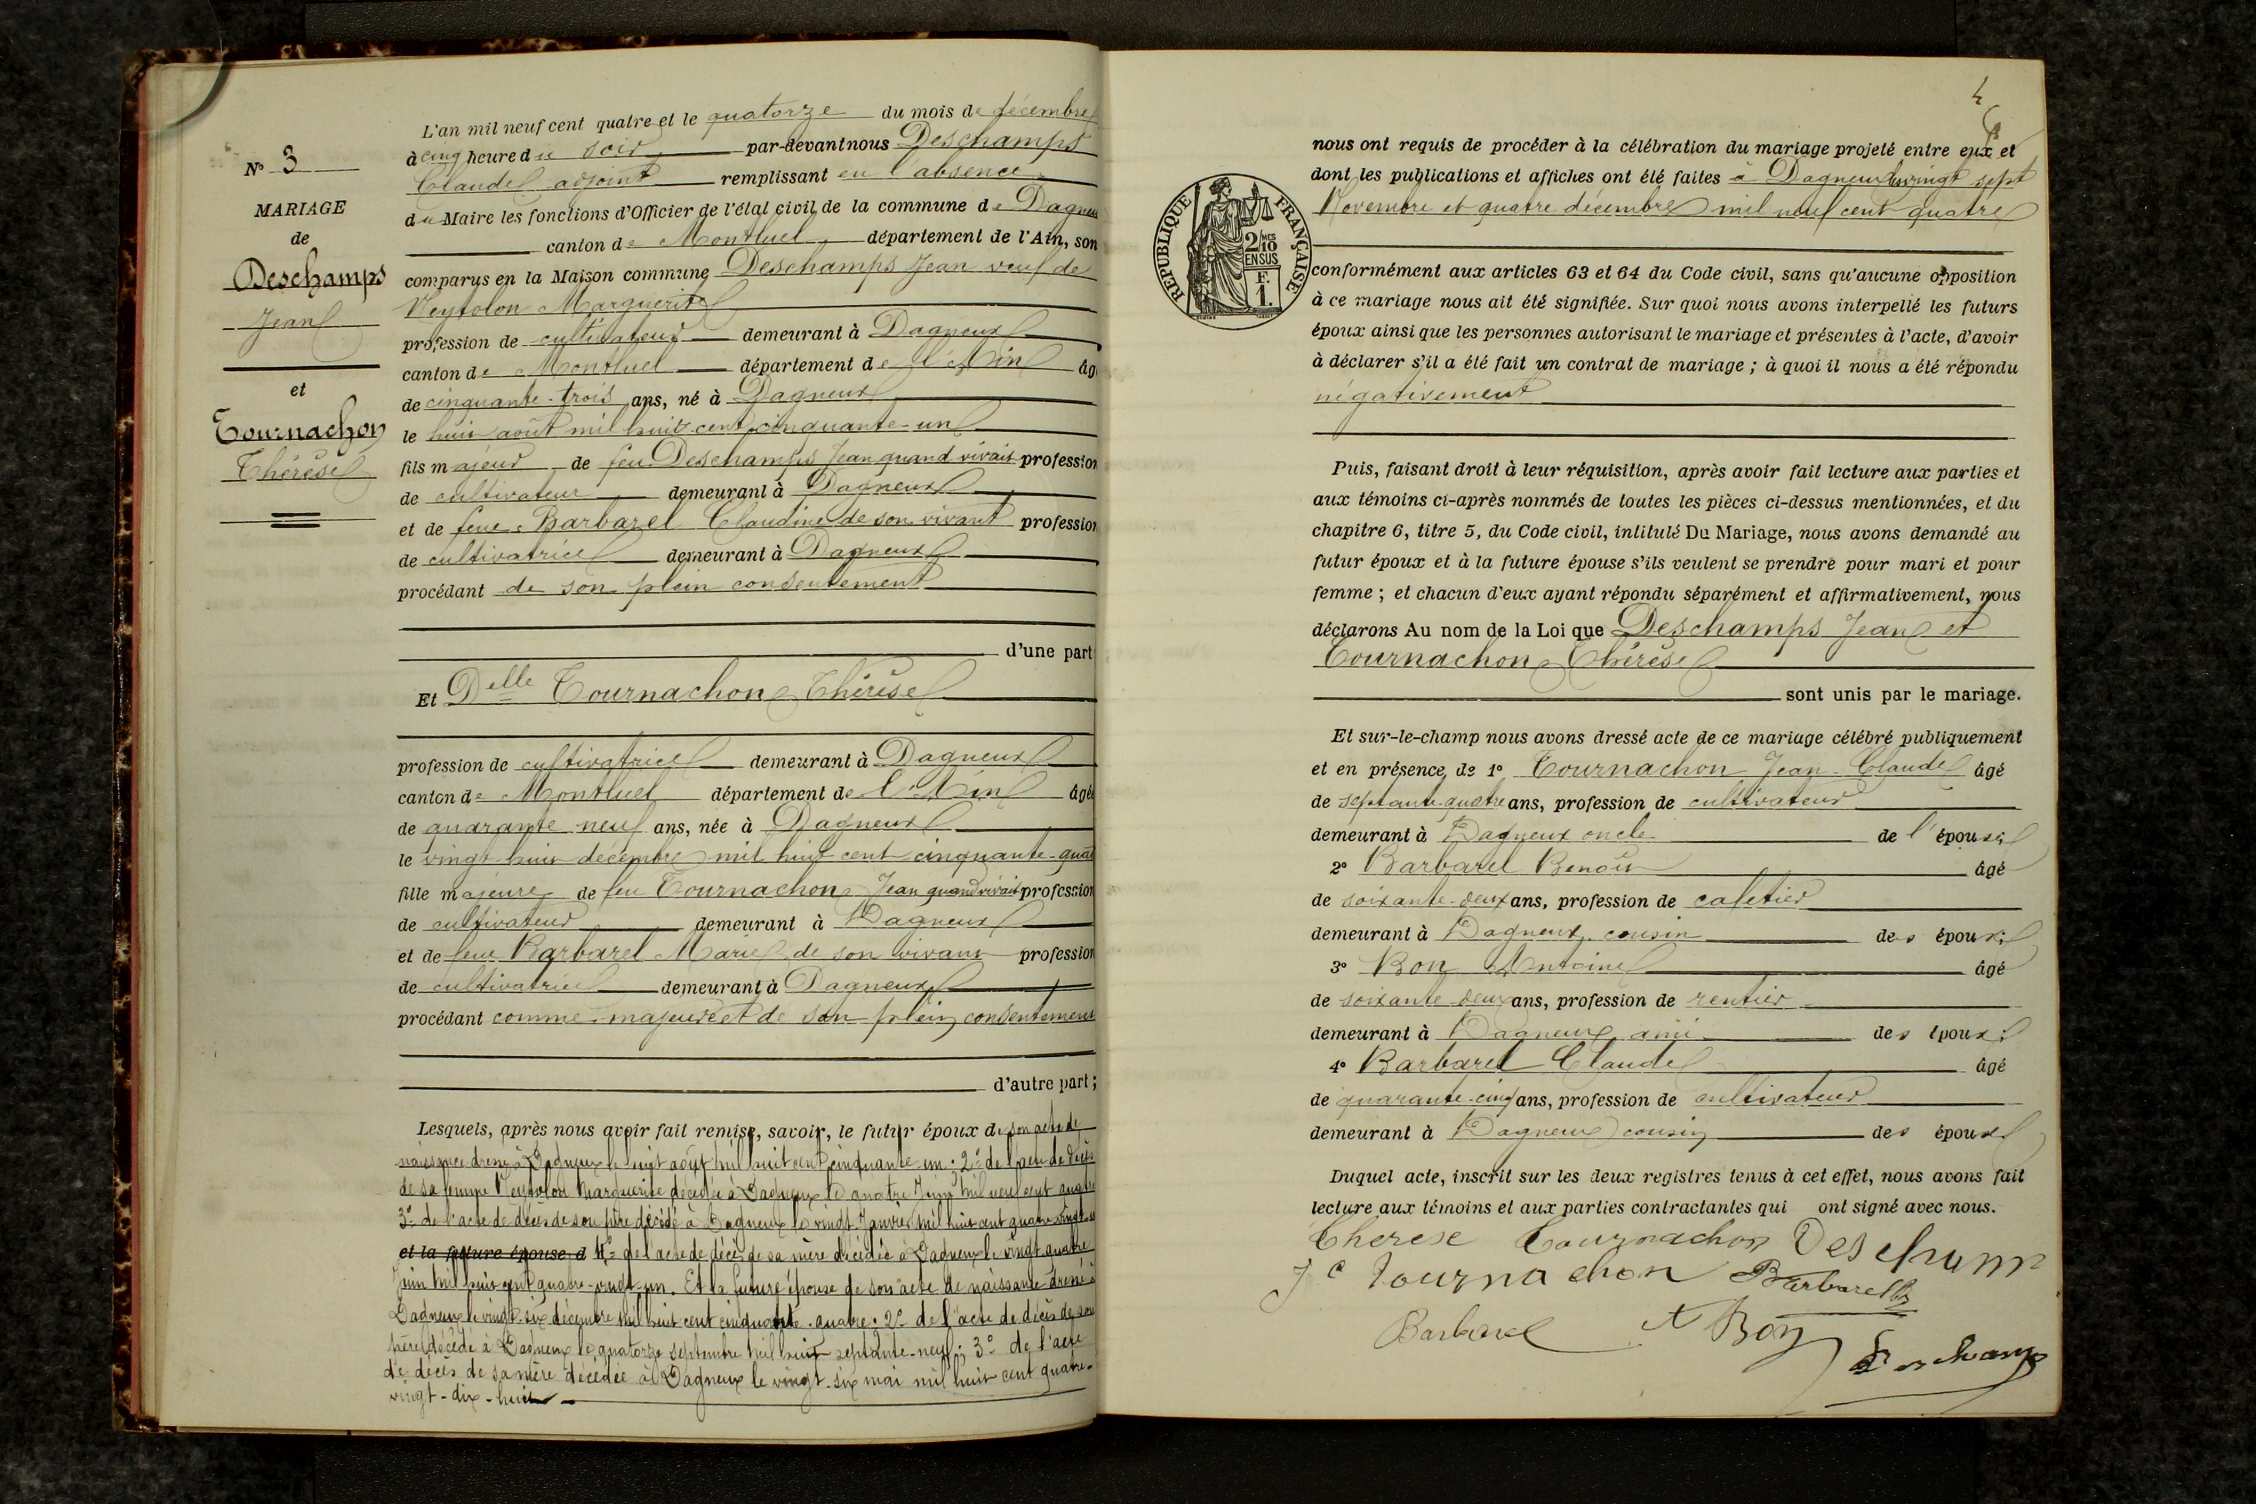 N° 3
MARIAGE
de
Deschamps
Jean
et
Tournachon
Thérèse
L'an mil neuf cent quatre et le quatorze du mois de décembre
à cinq heure du soir par-devant nous Deschamps
Claude adjoint remplissant en l'absence
du Maire les fonctions d'Officier de l'état civil de la commune de Dagneux
canton de Montluel, département de l'Ain, son
comparus en la Maison commune Deschamps Jean veuf de
Neyrolon Marguerite
profession de cultivateur demeurant à Dagneux
canton de Montluel département de l'Ain âgé
de cinquante-trois ans, né à Dagneux
le huit août mil huit cent cinquante-un
fils majeur de feu Deschamps Jean quand vivait profession
de cultivateur demeurant à Dagneux
et de feue Barbarel Claudine de son vivant profession
de cultivatrice demeurant à Dagneux
procédant de son plein consentement
d'une part
Et Delle Tournachon Thérèse
profession de cultivatrice demeurant à Dagneux
canton de Montluel département de l'Ain âgée
de quarante neuf ans, née à Dagneux
le vingt-huit décembre mil huit cent cinquante-quat
fille majeure de feu Tournachon Jean quand vivait profession
de cultivateur demeurant à Dagneux
et de feue Barbarel Marie de son vivant profession
de cultivatrice demeurant à Dagneux
procédant comme majeure et de son plein consentement
d'autre part;
Lesquels, après nous avoir fait remise, savoir, le futur époux de son acte de
naissance dressé à Dagneux le huit août mil huit cent cinquante-un; 2° de l'acte de décès
de sa femme Neyrolon Marguerite décédée à Dagneux le quatre Juin mil neuf cent quatre
3° de l'acte de décès de son père décédé à Dagneux le vingt Janvier mil huit cent quatre vingt
et la future épouse d 4° de l'acte de décès de sa mère décédée à Dagneux le vingt-quatre
Juin mil huit cent quatre-vingt-un. Et la future épouse de son acte de naissance dressé à
Dagneux le vingt-six décembre mil huit cent cinquante-quatre; 2° de l'acte de décès de son
père décédé à Dagneux le quatorze septembre mil huit septante-neuf; 3° de l'acte
de décès de sa mère décédée à Dagneux le vingt-six mai mil huit cent quatre-
vingt-dix-huit
4
nous ont requis de procéder à la célébration du mariage projeté entre eux et
dont les publications et affiches ont été faites à Dagneux les vingt sept
Novembre et quatre décembre mil neuf cent quatre
RÉPUBLIQUE FRANÇAISE
2/10 MES
EN SUS
F.
1.
conformément aux articles 63 et 64 du Code civil, sans qu'aucune opposition
à ce mariage nous ait été signifiée. Sur quoi nous avons interpellé les futurs
époux ainsi que les personnes autorisant le mariage et présentes à l'acte, d'avoir
à déclarer s'il a été fait un contrat de mariage; à quoi il nous a été répondu
négativement
Puis, faisant droit à leur réquisition, après avoir fait lecture aux parties et
aux témoins ci-après nommés de toutes les pièces ci-dessus mentionnées, et du
chapitre 6, titre 5, du Code civil, intitulé Du Mariage, nous avons demandé au
futur époux et à la future épouse s'ils veulent se prendre pour mari et pour
femme; et chacun d'eux ayant répondu séparément et affirmativement, nous
déclarons Au nom de la Loi que Deschamps Jean et
Tournachon Thérèse
sont unis par le mariage.
Et sur-le-champ nous avons dressé acte de ce mariage célébré publiquement
et en présence de 1° Tournachon Jean-Claude âgé
de septante-quatre ans, profession de cultivateur
demeurant à Dagneux oncle de l'épouse
2° Barbarel Benoît âgé
de soixante-deux ans, profession de cafetier
demeurant à Dagneux cousin des époux;
3° Bon Antoine âgé
de soixante deux ans, profession de rentier
demeurant à Dagneux ami des époux;
4° Barbarel Claude âgé
de quarante-cinq ans, profession de cultivateur
demeurant à Dagneux cousin des époux
Duquel acte, inscrit sur les deux registres tenus à cet effet, nous avons fait
lecture aux témoins et aux parties contractantes qui ont signé avec nous.
Therese Tournachon Deschamp
J C Tournachon Barbarel B
Barbarel A Bon Deschamps